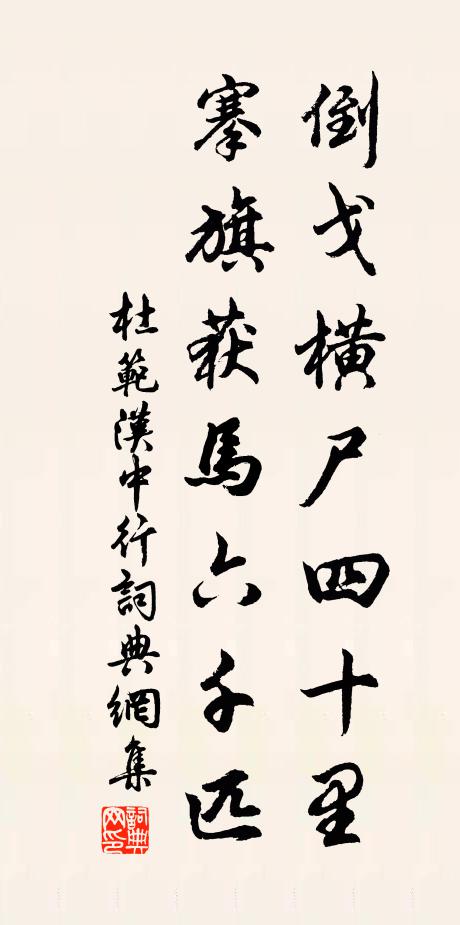 倒戈橫尸四十里
搴旗获馬六千匹
杜範漢中行詞典網集
詞典网印